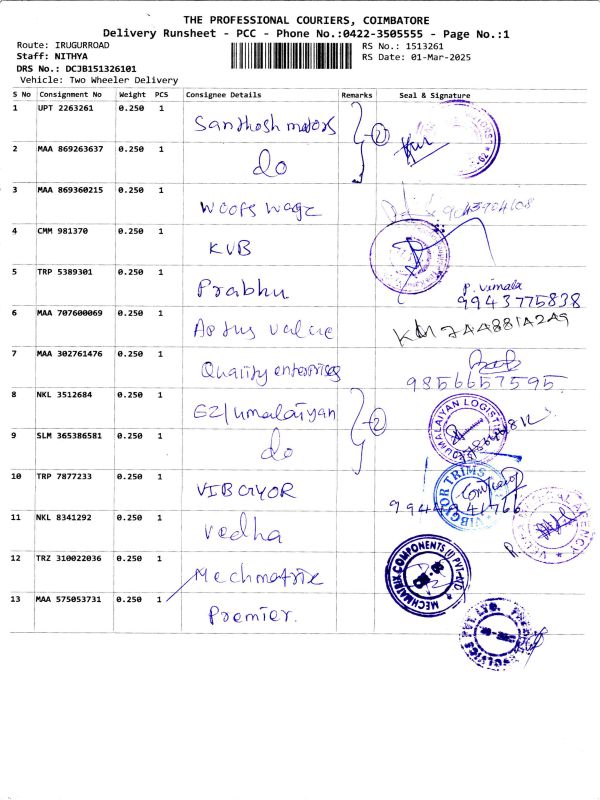 THE PROFESSIONAL COURIERS, COIMBATORE
Delivery Runsheet - PCC - Phone No.:0422-3505555 - Page No.:1
Route: IRUGURROAD RS No.: 1513261
Staff: NITHYA RS Date: 01-Mar-2025
DRS No.: DCJB151326101
Vehicle: Two Wheeler Delivery
S No Consignment No Weight PCS Consignee Details Remarks Seal & Signature
1 UPT 2263261 0.250 1 Santhosh motors 2
2 MAA 869263637 0.250 1 do
3 MAA 869360215 0.250 1
4 CMM 981370 0.250 1 KVB
5 TRP 5389301 0.250 1 Prabhu P. Vimala
9943775838
6 MAA 707600069 0.250 1 Aptus value
7 MAA 302761476 0.250 1 Quality enterprises
9856657595
8 NKL 3512684 0.250 1 2
9 SLM 365386581 0.250 1 do
10 TRP 7877233 0.250 1 VIBGYOR VIBGYOR TRIMS
11 NKL 8341292 0.250 1 vedha
12 TRZ 310022036 0.250 1 Mechmatrix MECHMATRIX COMPONENTS (I) PVT LTD
13 MAA 575053731 0.250 1 Premier.